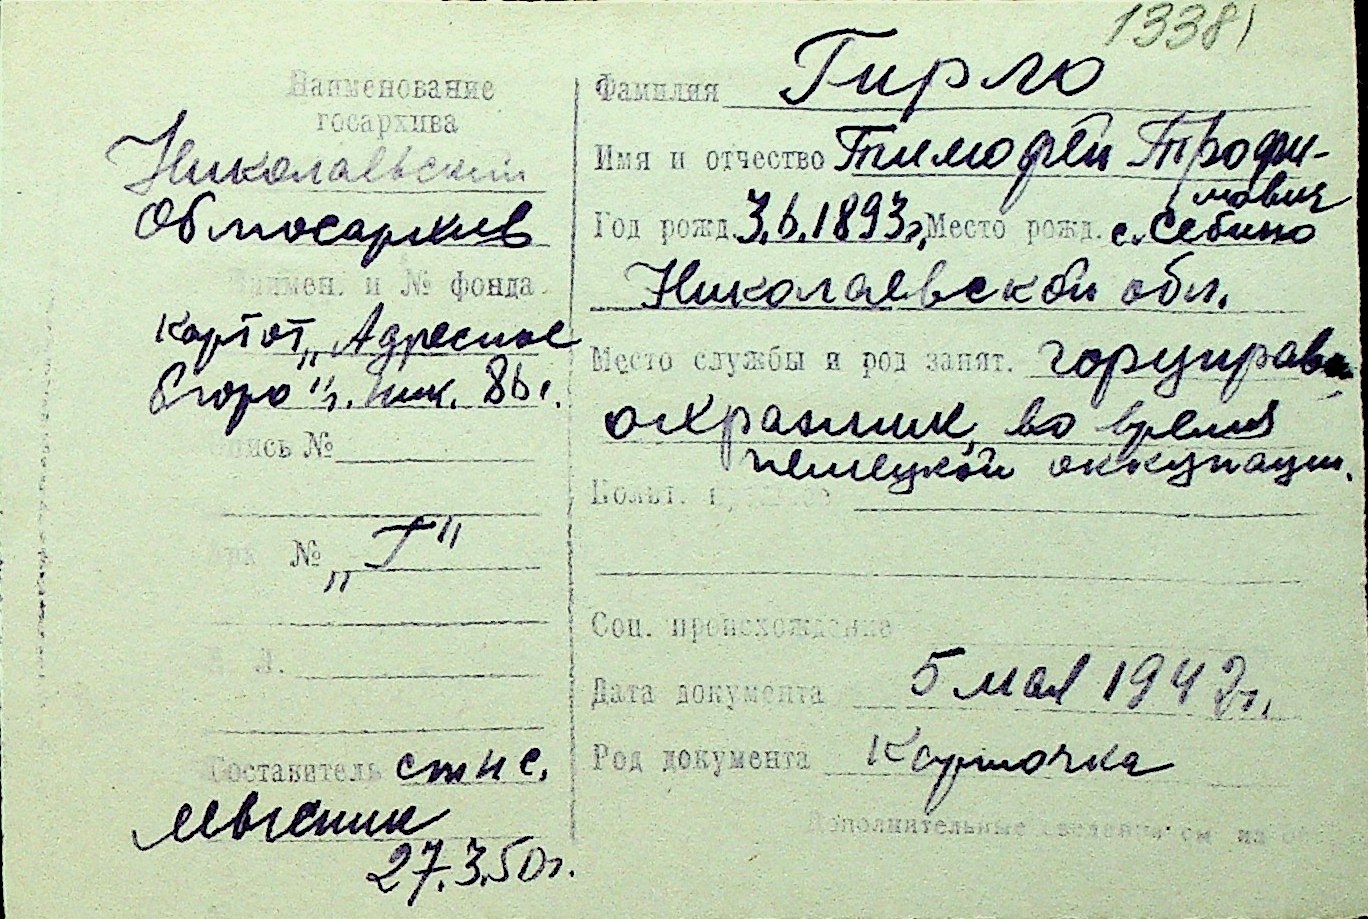 13381
Наименование
госархива
Николаевский
Облгосархив
Наимен. и № фонда
картот. „Адресное
бюро" г. Ник. 8б г.
Опись №
№ „Г"
Составитель ст н с.
Фамилия Гирло
Имя и отчество Тимофей Трофи-
мович
Год рожд. 3.6.1893г. Место рожд. с. Себино
Николаевской обл.
Место службы и род занят. горуправа
охранник, во время
немецкой оккупации.
Соц. происхождение
Дата документа 5 мая 1942г.
Род документа Карточка
Дополнительные сведения см на об
27.3.50г.